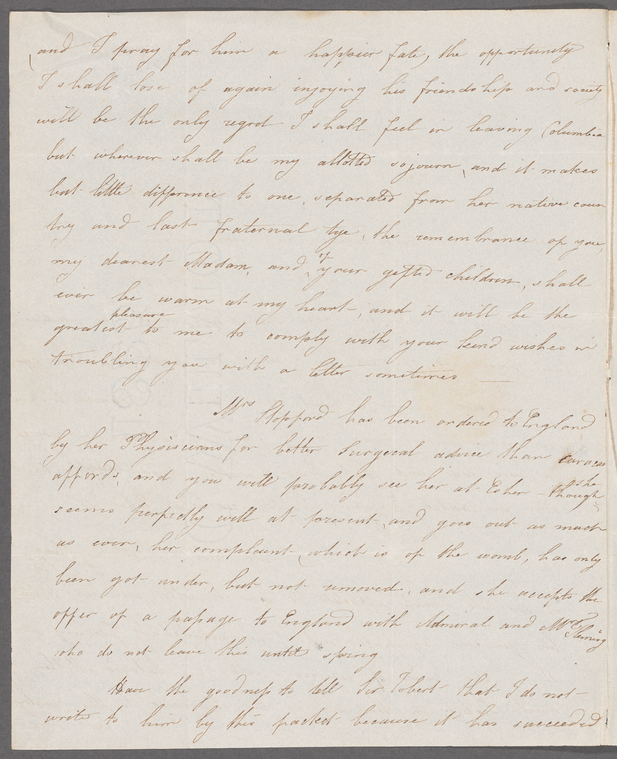 and I pray for him a happier fate, the opportunity
I shall lose of again injoying his friendship and society
will be the only regret I shall feel in leaving Columbia
but wherever shall be my allotted sojourn, and it makes
but little difference to one, separated from her native coun
try and last fraternal tye, the remembrance of you,
my dearest Madam, and of your gifted children, shall
ever be warm at my heart, and it will be the
greatest pleasure to me to comply with your kind wishes in
troubling you with a letter sometimes
Mrs Stopford has been ordered to England
by her Physicians for better Surgecal advice than Curacao
affords, and you will probably see her at Esher - though she
seems perfectly well at present, and goes out as much
as ever, her complaint, which is of the womb, has only
been got under, but not removed, and she accepts the
offer of a passage to England with Admiral and Mrs Fleming
who do not leave this until spring
Have the goodness to tell Sir Robert that I do not
write to him by this packet because it has succeeded